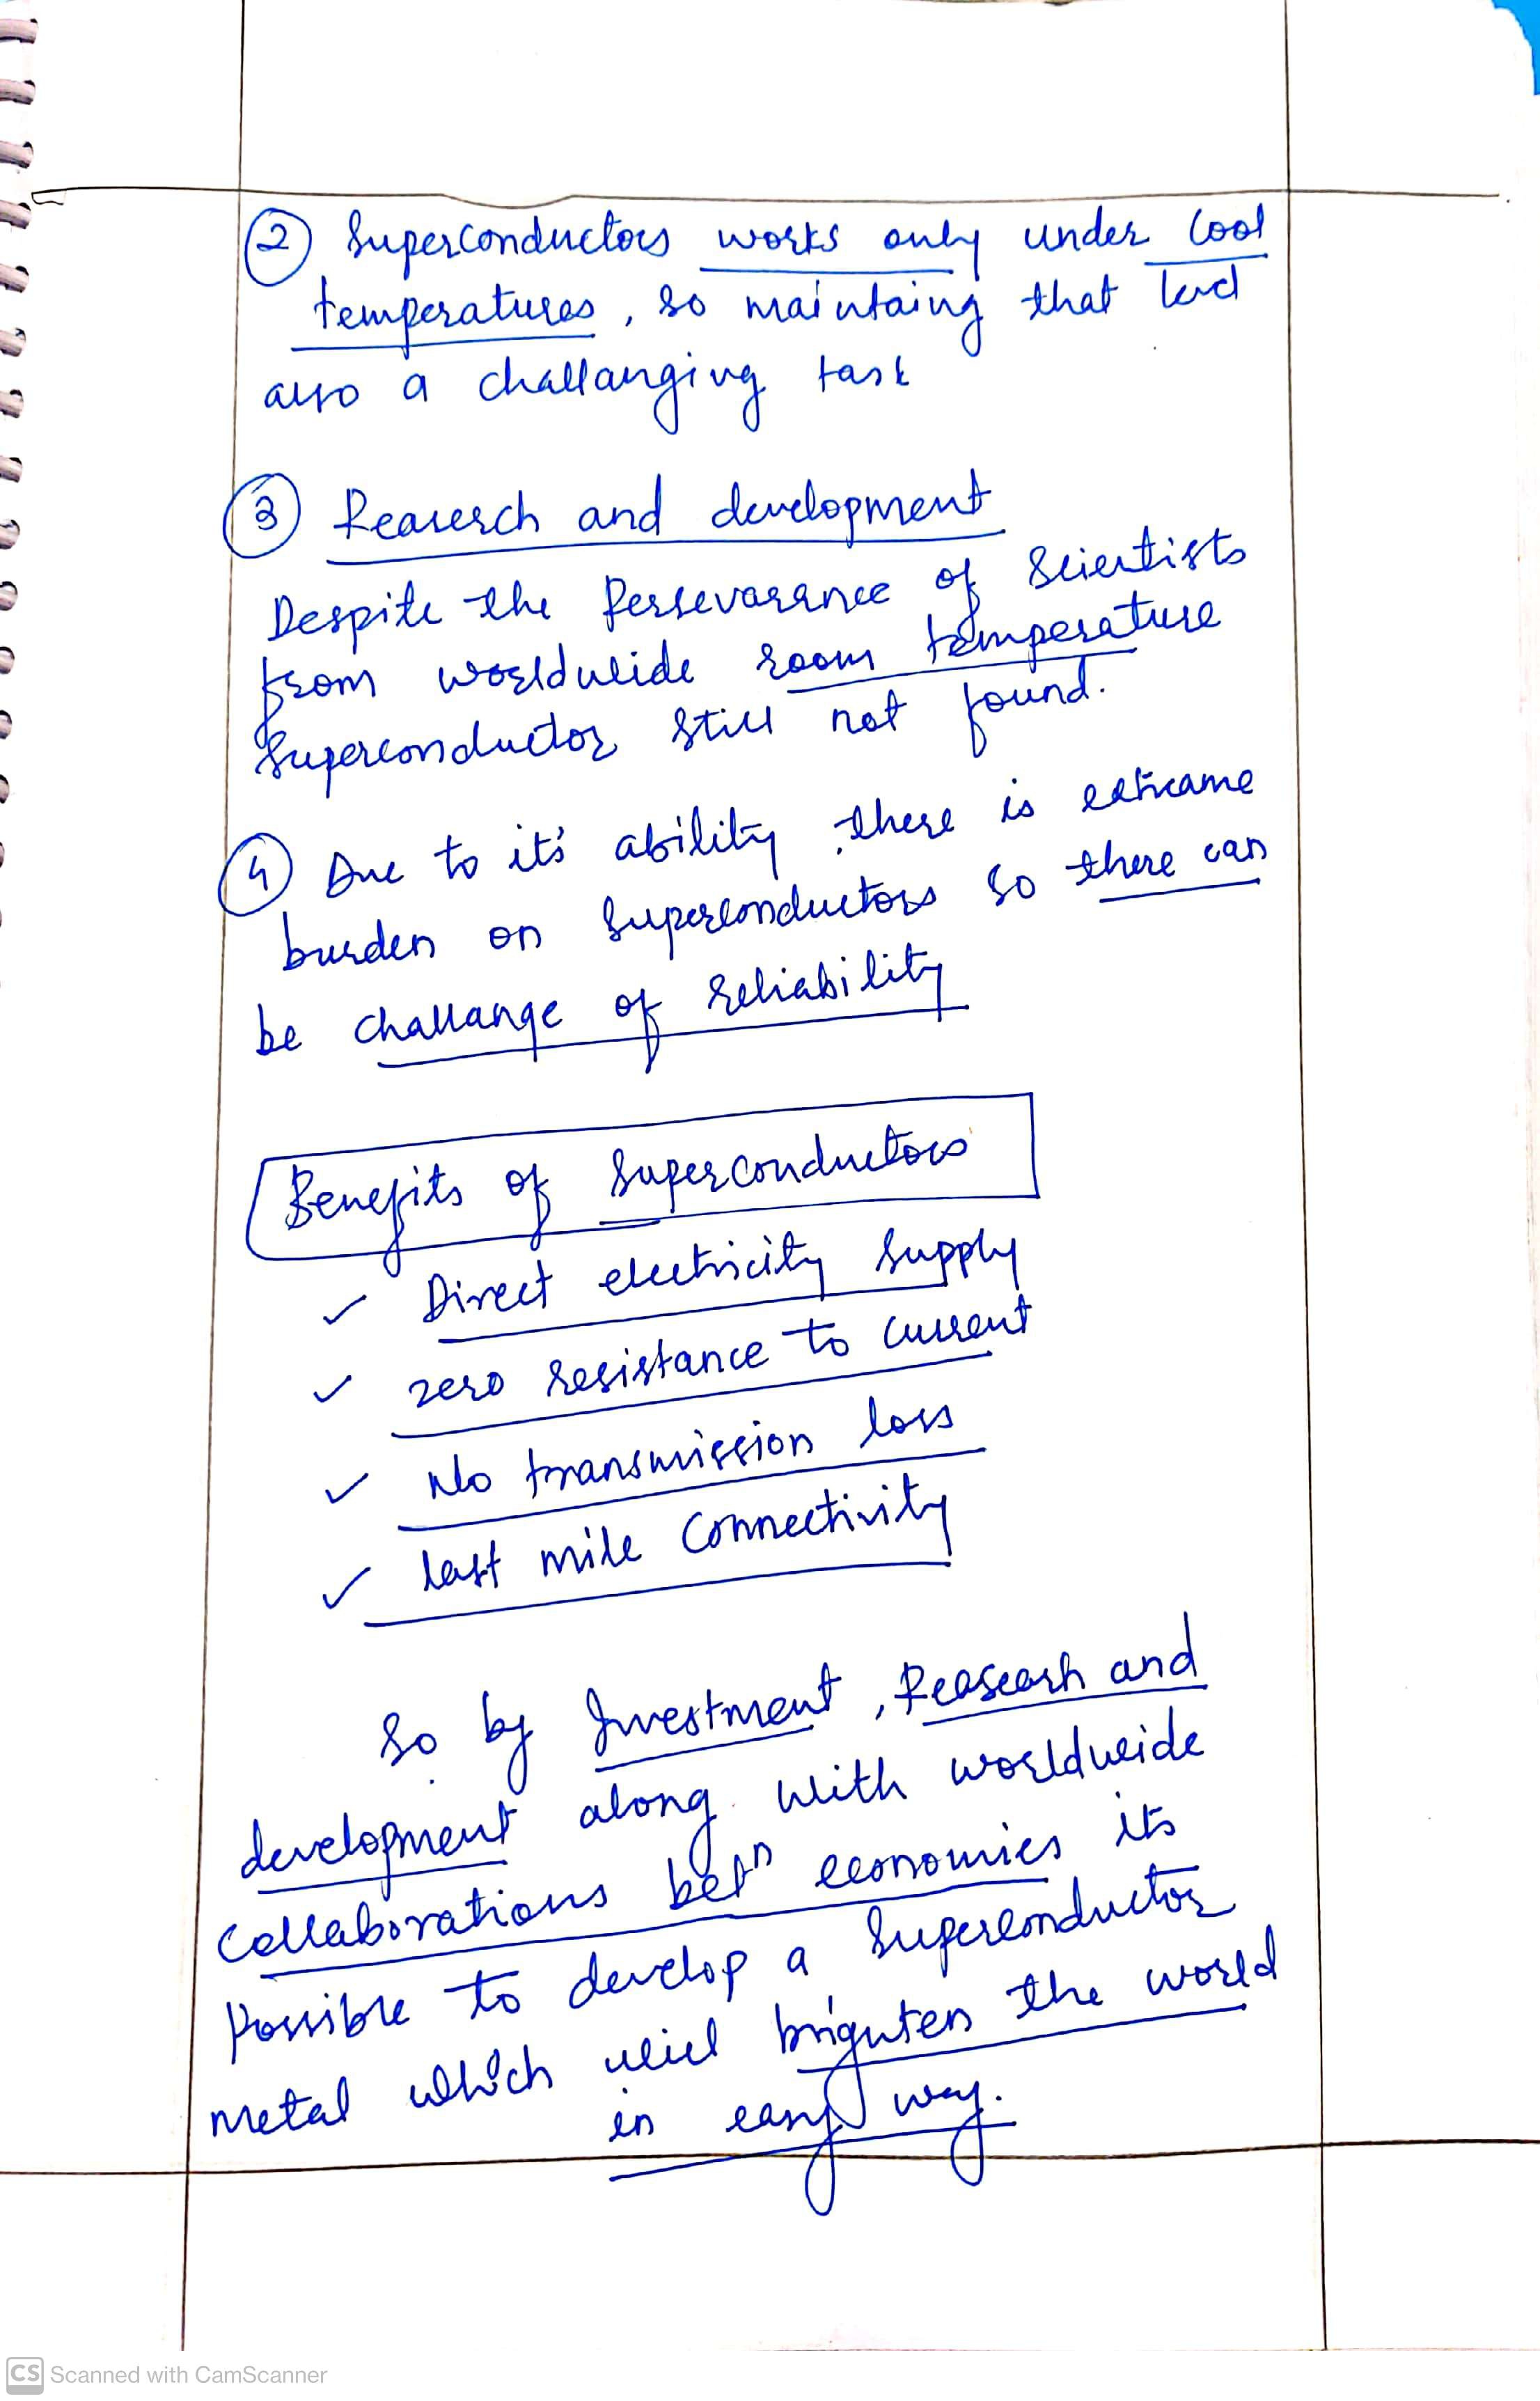 ② Superconductors works only under cool
temperatures, so maintaing that lead
also a challanging task
③ Reaserch and development
Despite the Persevarance of Scientists
from worldwide room temperature
Superconductor still not found.
④ Due to it's ability, there is extreame
burden on Superconductors so there can
be challange of reliability
Benefits of Superconductors
✓ Direct electricity supply
✓ zero resistance to current
✓ No transmission loss
✓ last mile connectivity
So by Investment, Reasearh and
development along with worldwide
collaborations betn economies its
Possible to develop a Superconductor
metal which will brighten the world
in easy way.
CS Scanned with CamScanner